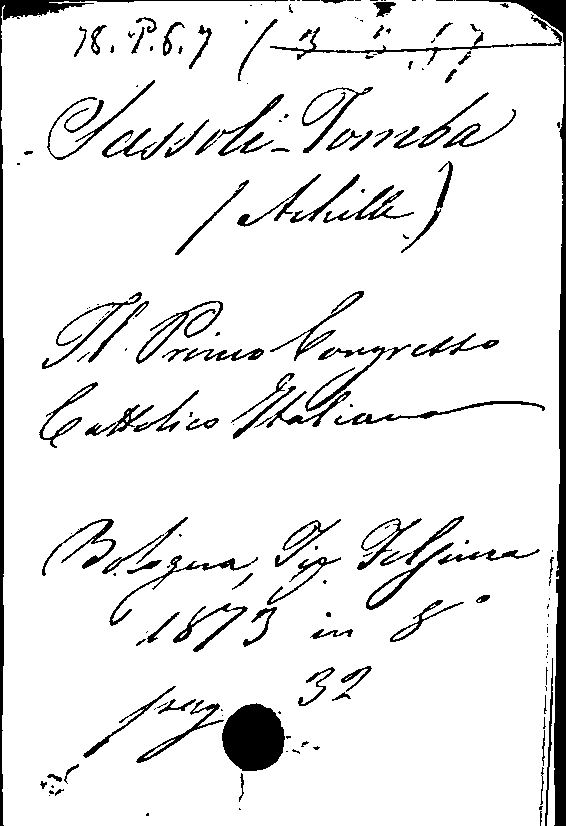 78. P. 6. 7
Sassoli-Tomba
(Achille)
Il Primo Congresso
Cattolico Italiano
Bologna, Tip. Felsinea
1873 in 8°
pag 32